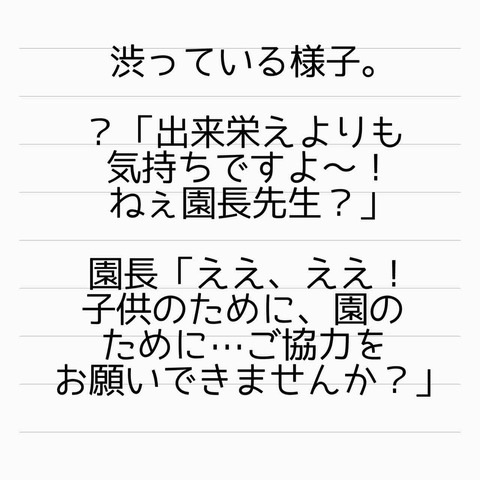 渋っている様子。
？「出来栄えよりも
気持ちですよ〜！
ねぇ園長先生？」
園長「ええ、ええ！
子供のために、園の
ために…ご協力を
お願いできませんか？」